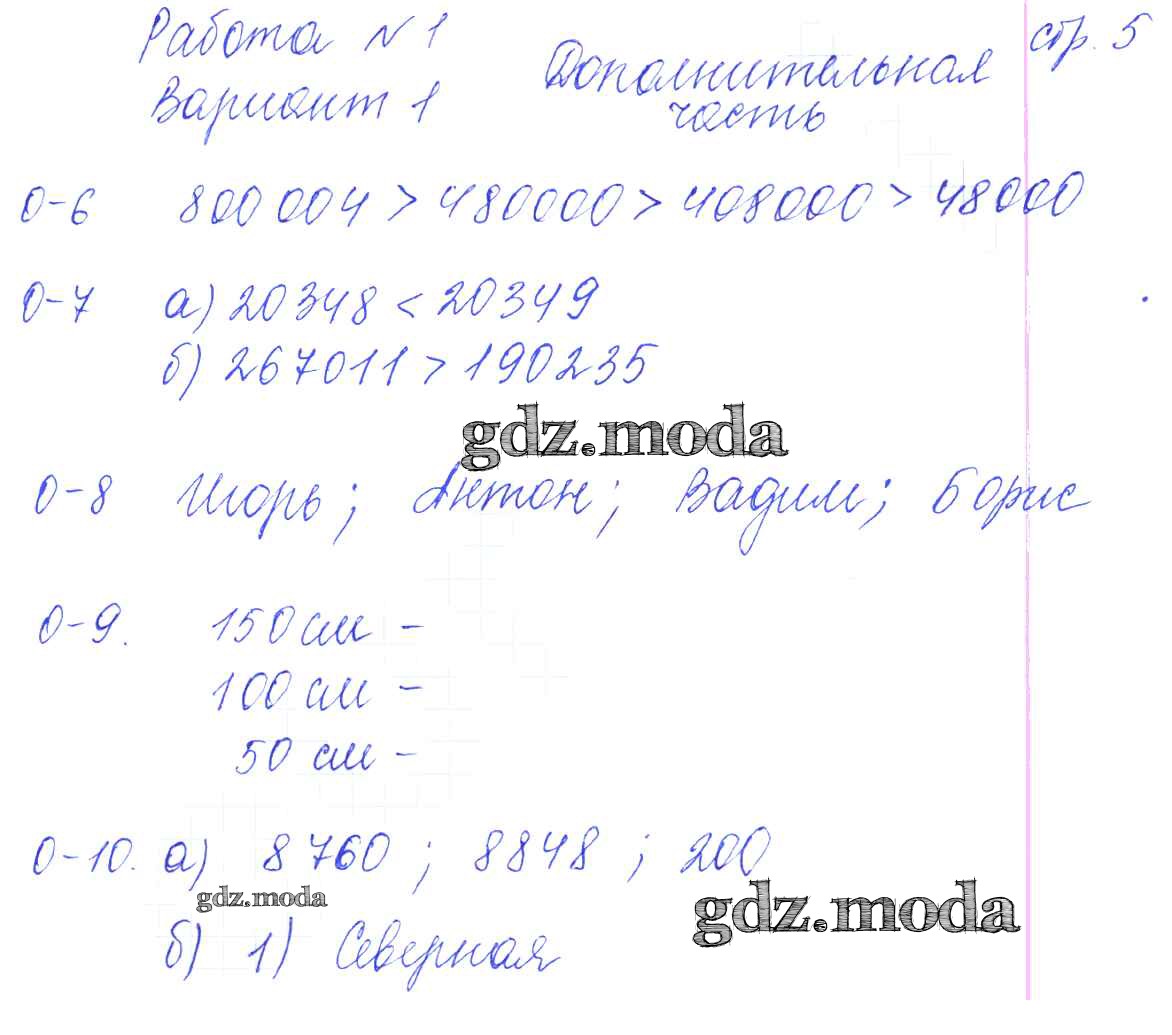 Работа №1
Вариант 1
Дополнительная
часть
стр. 5
0-6 800 004 > 480000 > 408000 > 48000
0-7 а) 20348 < 20349
б) 267011 > 190235
gdz.moda
0-8 Игорь; Антон; Вадим; Борис
0-9. 150 см -
100 см -
50 см -
0-10. а) 8760 ; 8848 ; 200
gdz.moda
gdz.moda
б) 1) Северная